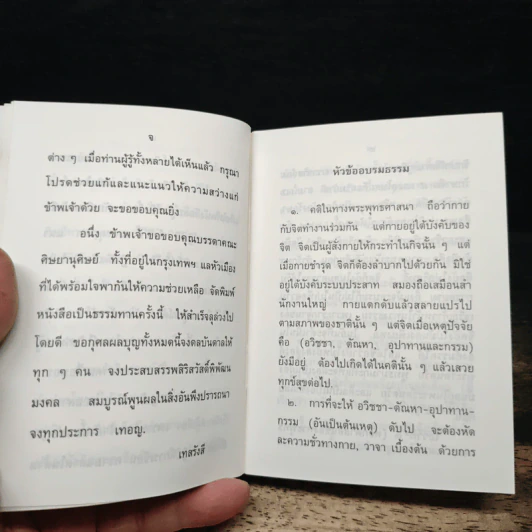 จ
ต่าง ๆ เมื่อท่านผู้รู้ทั้งหลายได้เห็นแล้ว กรุณา
โปรดช่วยแก้และแนะแนวให้ความสว่างแก่
ข้าพเจ้าด้วย จะขอขอบคุณยิ่ง
อนึ่ง ข้าพเจ้าขอขอบคุณบรรดาคณะ
ศิษยานุศิษย์ ทั้งที่อยู่ในกรุงเทพฯ แลหัวเมือง
ที่ได้พร้อมใจพากันให้ความช่วยเหลือ จัดพิมพ์
หนังสือเป็นธรรมทานครั้งนี้ ให้สำเร็จลุล่วงไป
โดยดี ขอกุศลผลบุญทั้งหมดนี้จงดลบันดาลให้
ทุก ๆ คน จงประสบสรรพสิริสวัสดิ์พิพัฒน
มงคล สมบูรณ์พูนผลในสิ่งอันพึงปรารถนา
จงทุกประการ เทอญ.
เทสรังสี
หัวข้ออบรมธรรม
๑. คติในทางพระพุทธศาสนา ถือว่ากาย
กับจิตทำงานร่วมกัน แต่กายอยู่ใต้บังคับของ
จิต จิตเป็นผู้สั่งกายให้กระทำในกิจนั้น ๆ แต่
เมื่อกายชำรุด จิตก็ต้องลำบากไปด้วยกัน มิใช่
อยู่ใต้บังคับระบบประสาท สมองถือเสมือนสำ
นักงานใหญ่ กายแตกดับแล้วสลายแปรไป
ตามสภาพของชาตินั้น ๆ แต่จิตเมื่อเหตุปัจจัย
คือ (อวิชชา, ตัณหา, อุปาทานและกรรม)
ยังมีอยู่ ต้องไปเกิดได้ในคตินั้น ๆ แล้วเสวย
ทุกข์สุขต่อไป.
๒. การที่จะให้ อวิชชา-ตัณหา-อุปาทาน-
กรรม (อันเป็นต้นเหตุ) ดับไป จะต้องหัด
ละความชั่วทางกาย, วาจา เบื้องต้น ด้วยการ